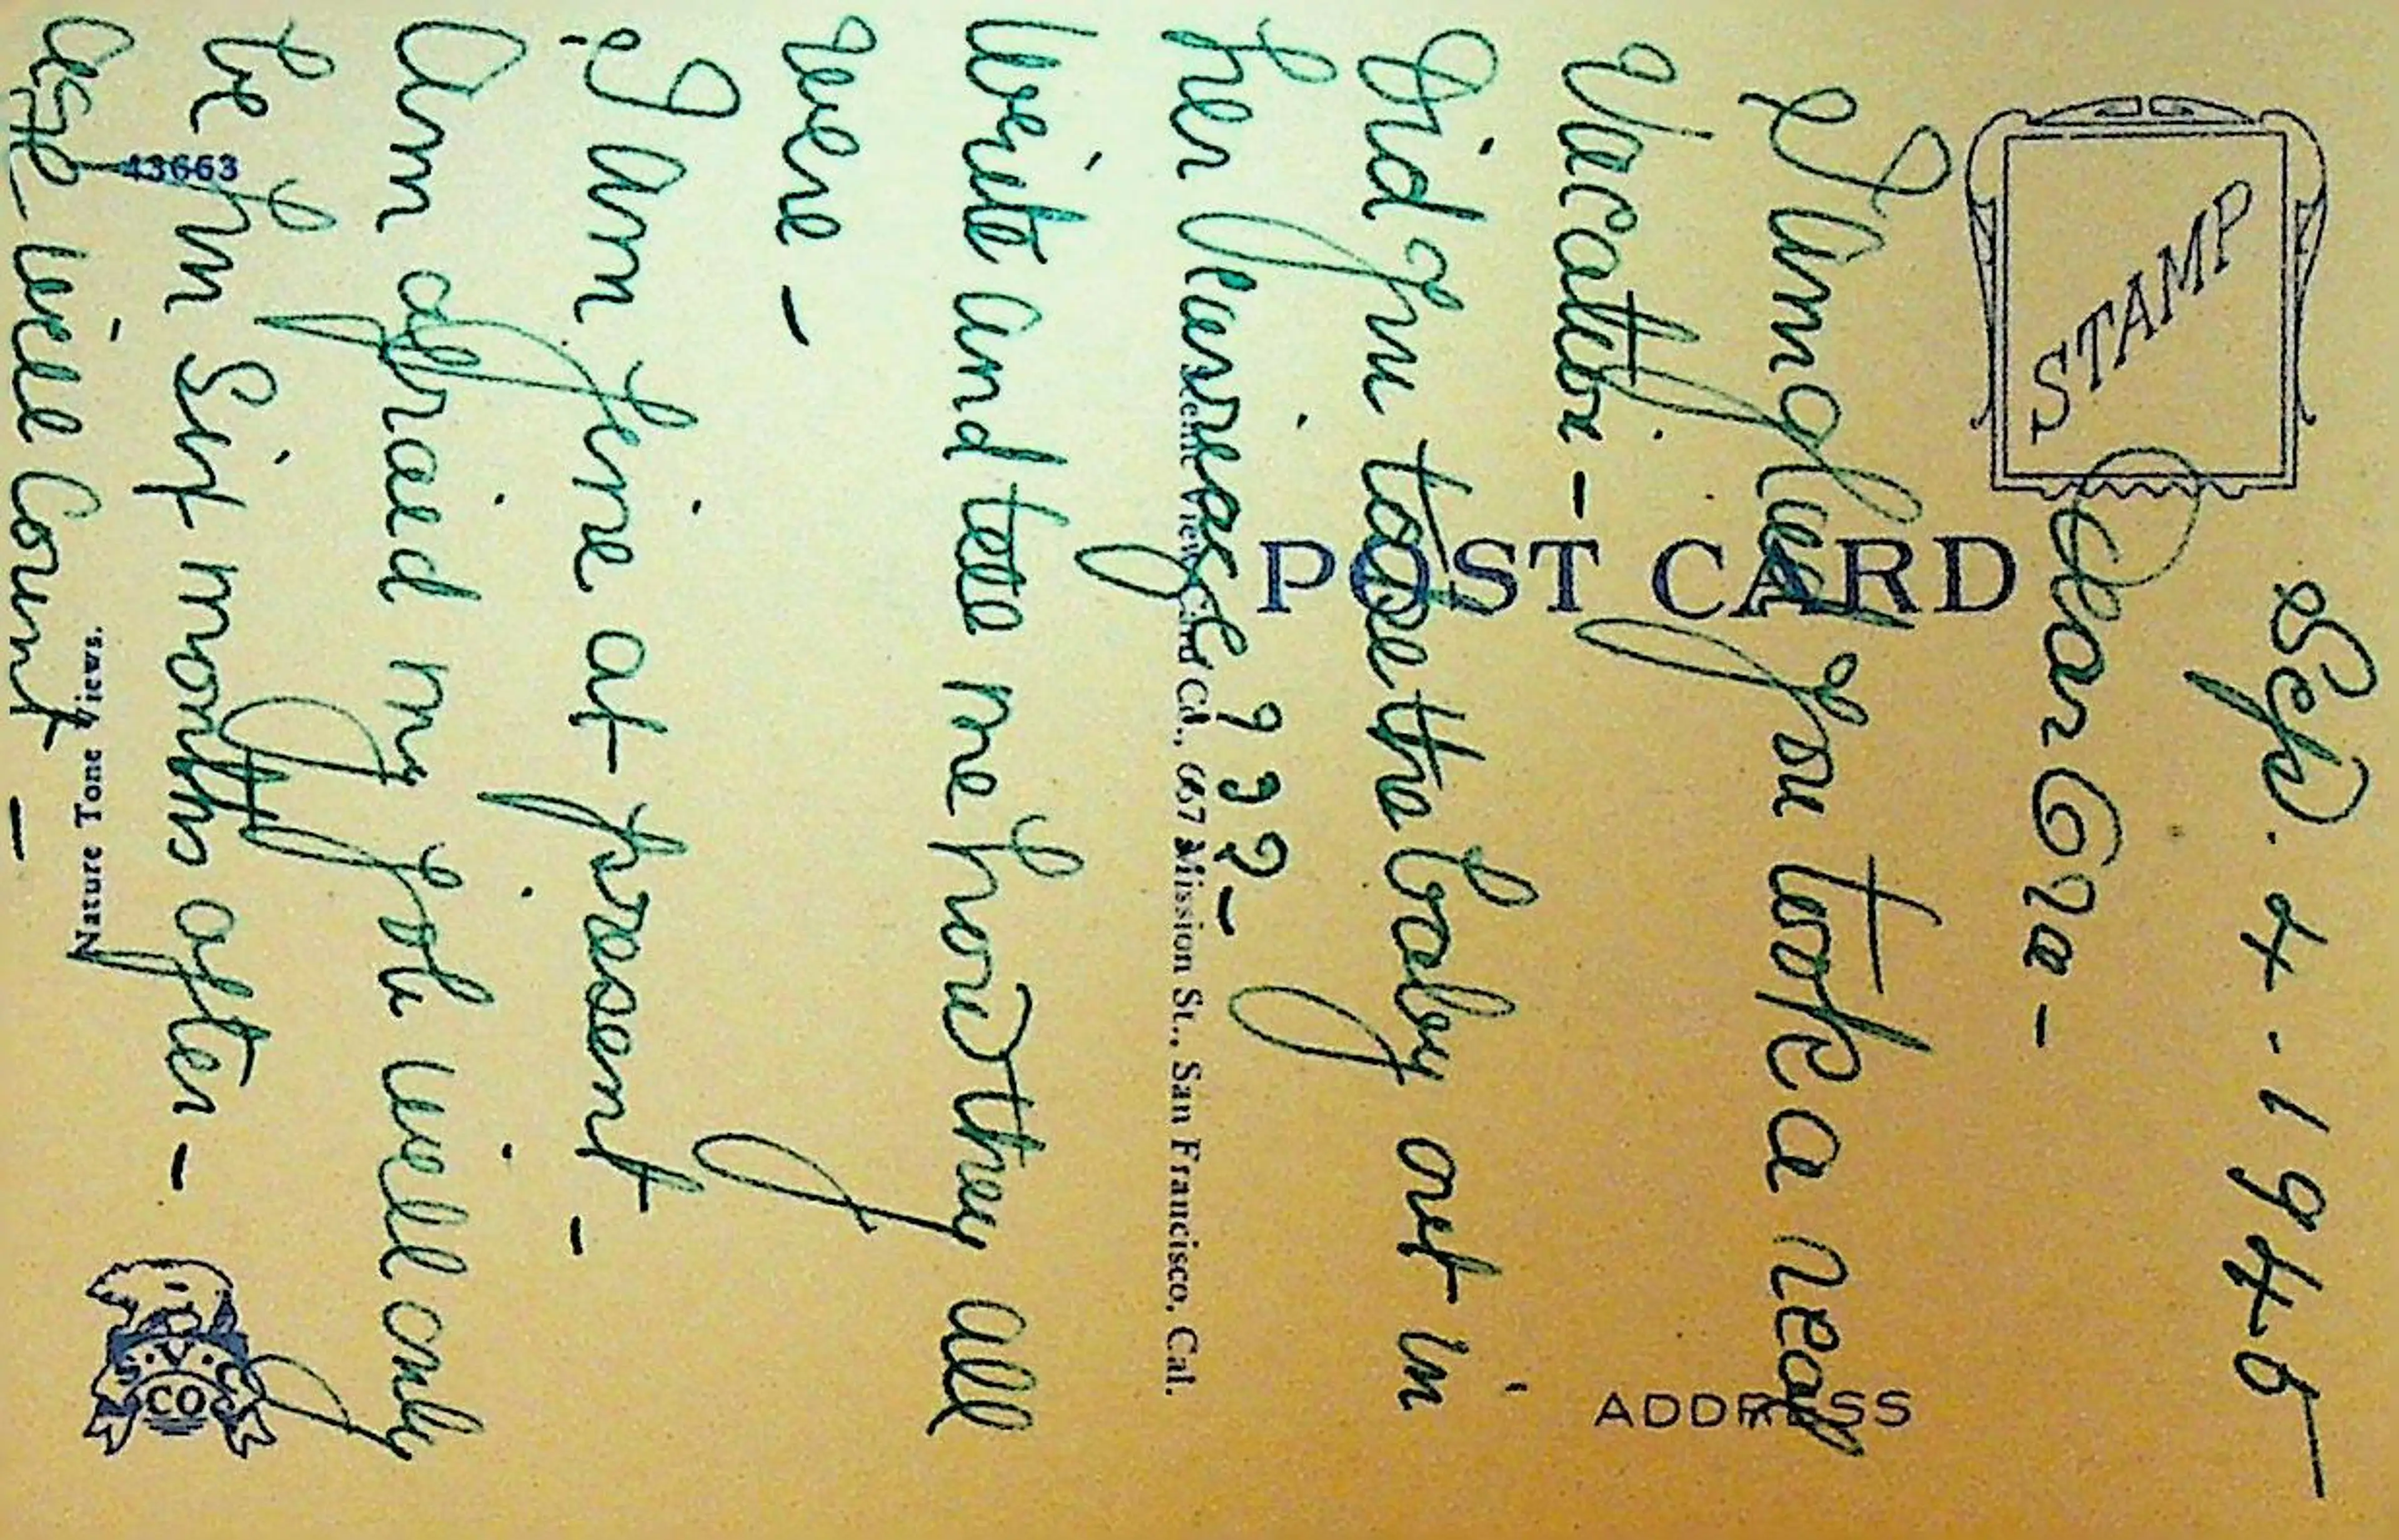 Sep. 4 - 1945
Dear Eva -
I am glad you took a real
Vacation -
Did you take the baby out in
her Carriage ? ? ? -
Write and tell me how they all
were -
I am fine at present -
Am afraid my job will only
be Six months after -
age will Count -
STAMP
POST CARD
ADDRESS
View Card Co., 657 Mission St., San Francisco, Cal.
Nature Tone Views.
43663
S.V.C.
CO